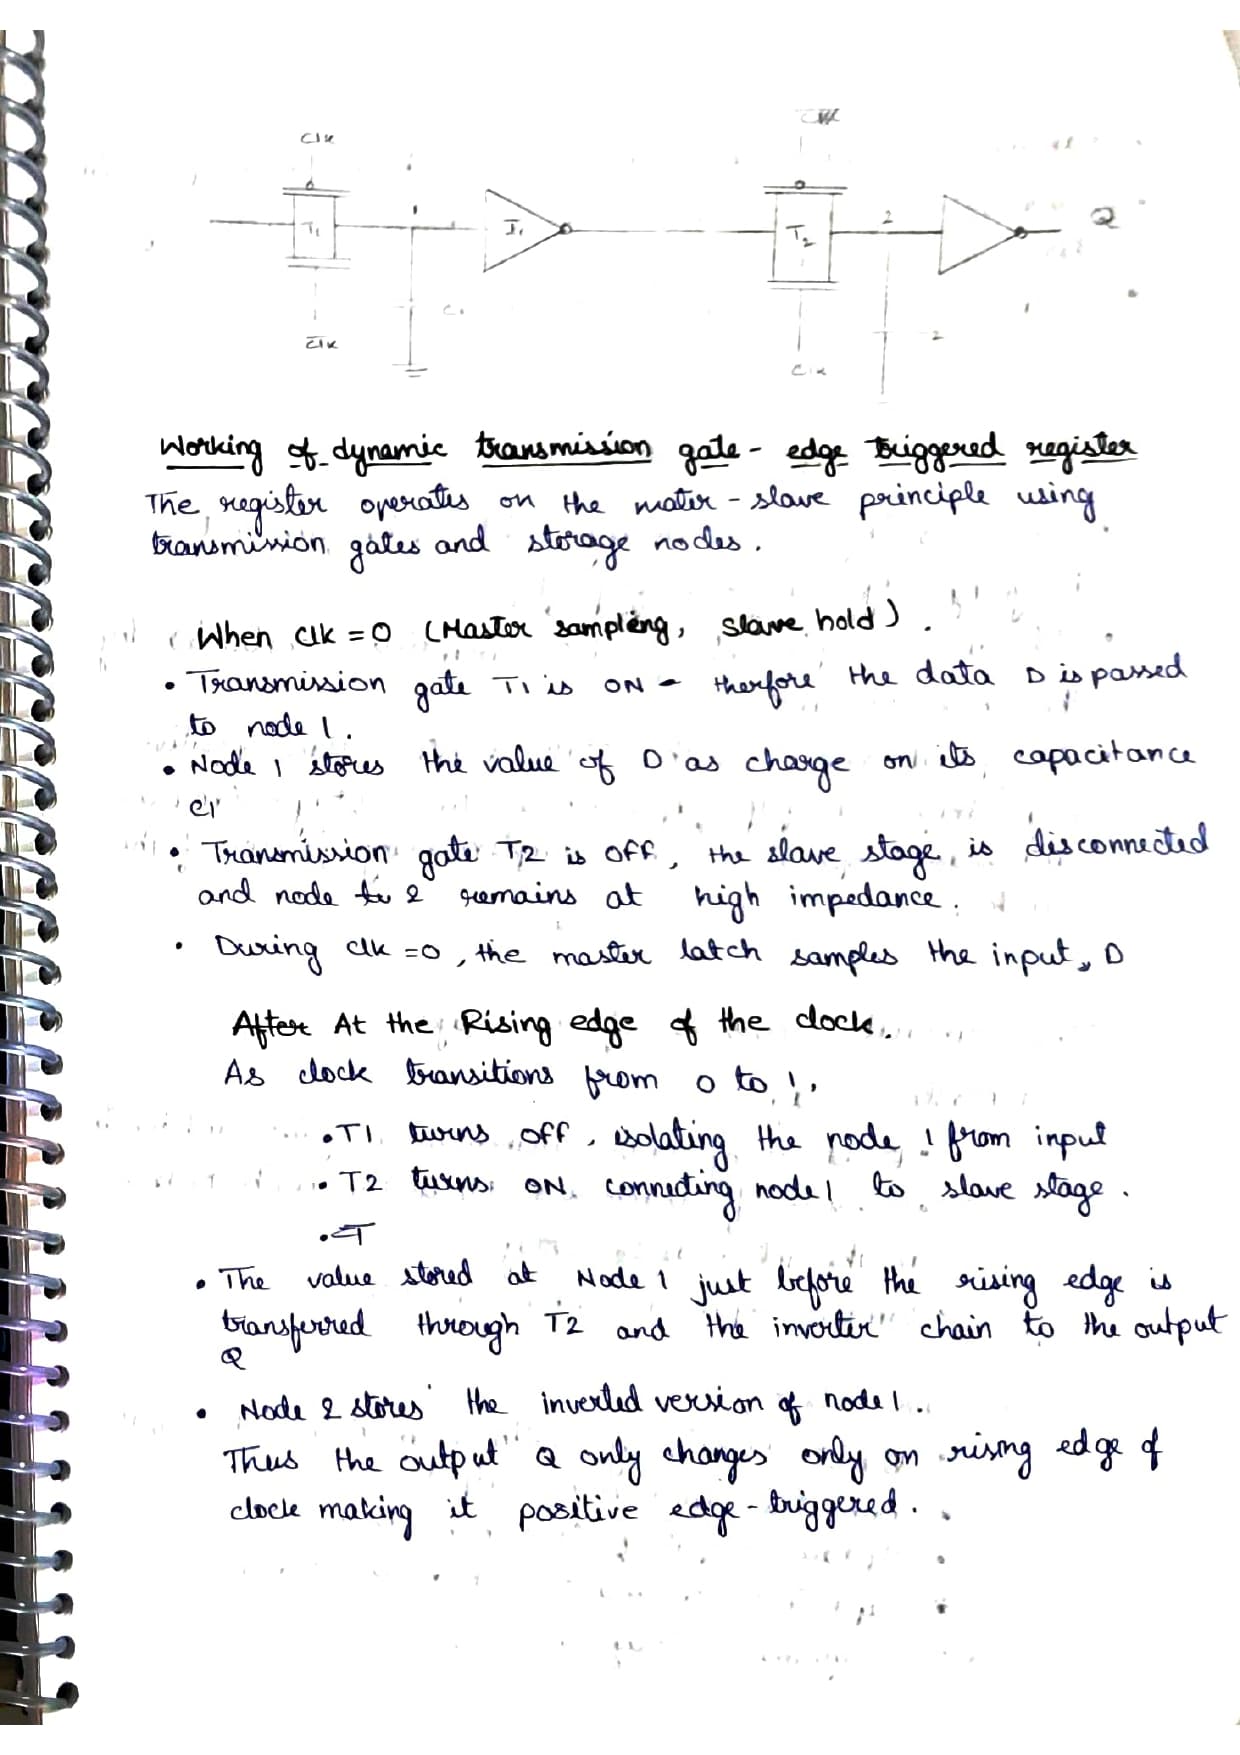 Clk
T1
1
I1
C1
C̅l̅k̅
C̅l̅k̅
T2
2
Q
Clk
2
Working of dynamic transmission gate - edge triggered register
The register operates on the mater - slave principle using
transmission gates and storage nodes.
When Clk = 0 (Master sampling, slave hold).
• Transmission gate T1 is ON - therfore the data D is passed
to node 1.
• Node 1 stores the value of D as charge on its capacitance
C1
• Transmission gate T2 is off, the slave stage is disconnected
and node 2 remains at high impedance.
• During clk = 0, the master latch samples the input, D
After At the Rising edge of the clock.
As clock transitions from 0 to 1,
• T1 turns off, isolating the node 1 from input
• T2 turns ON connecting node 1 to slave stage.
• T
• The value stored at Node 1 just before the rising edge is
transferred through T2 and the inverter chain to the output
Q
• Node 2 stores the inverted version of node 1.
Thus the output Q only changes only on rising edge of
clock making it positive edge - triggered.